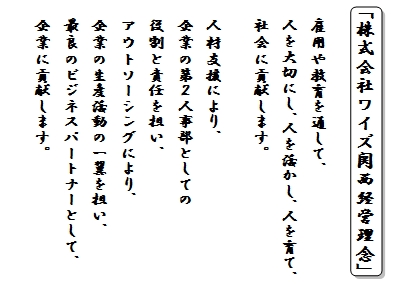 「株式会社ワイズ関西経営理念」
雇用や教育を通して、
人を大切にし、人を活かし、人を育て、
社会に貢献します。
人材支援により、
企業の第2人事部としての
役割と責任を担い、
アウトソーシングにより、
企業の生産活動の一翼を担い、
最良のビジネスパートナーとして、
企業に貢献します。